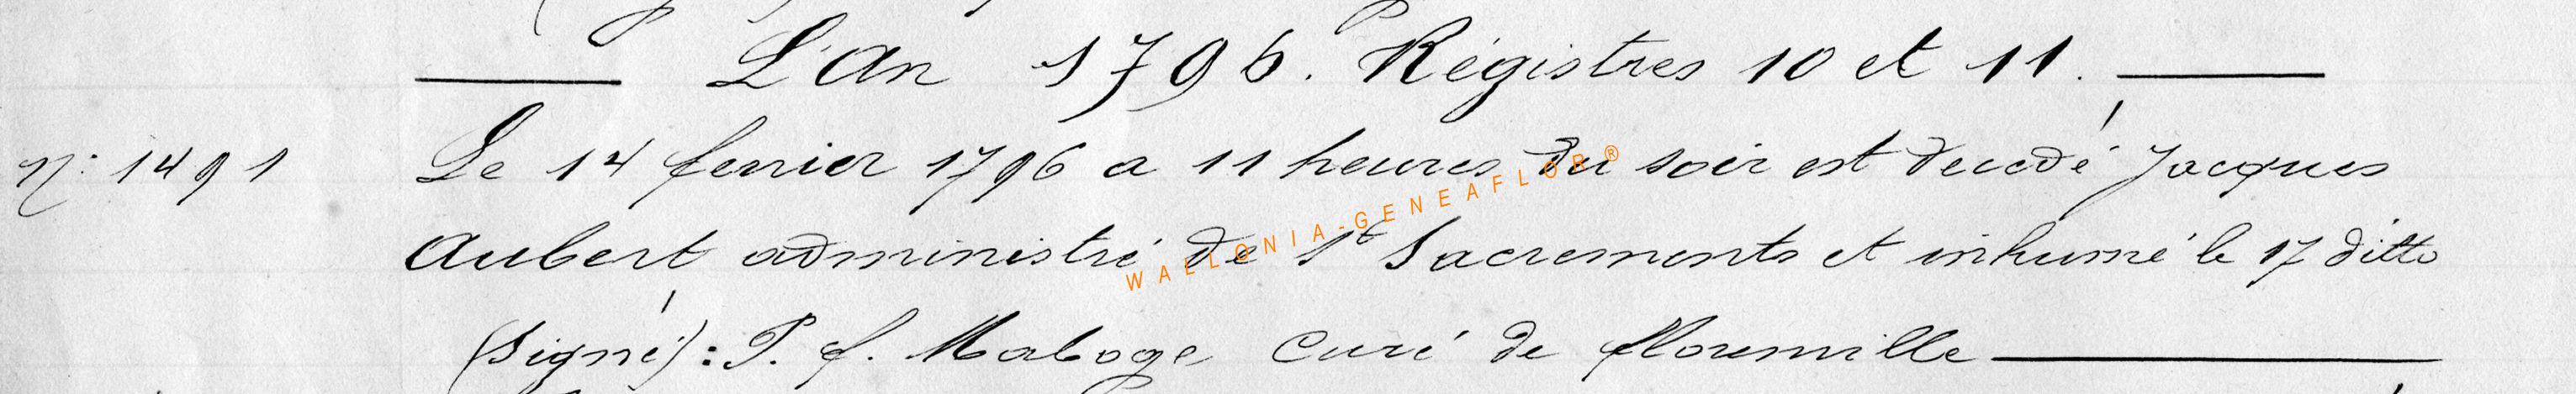 L'An 1796. Régistres 10 et 11.
n: 1491 Le 14 fevrier 1796 a 11 heures du soir est decedé Jacques
Aubert administré de St Sacrements et inhumé le 17 ditto
(signé): P. f. Maboge Curé de florenville
WALLONIA-GENEAFLOR®